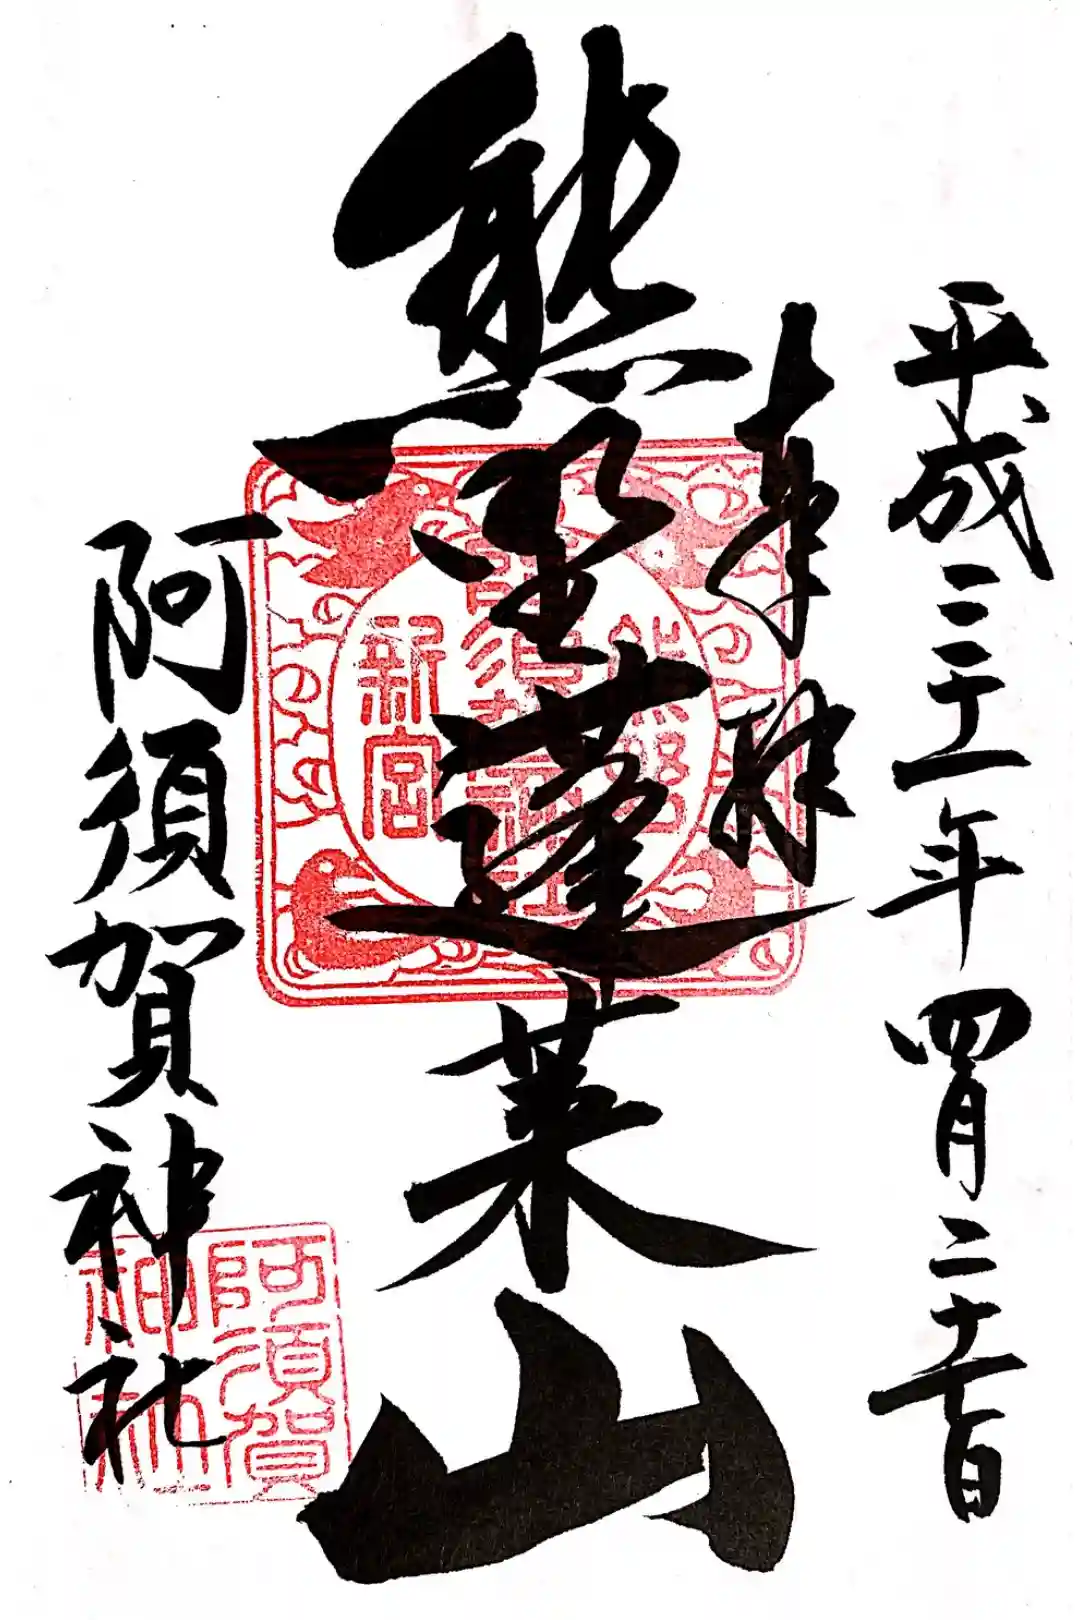 平成三十一年四月
奉拝
熊野蓬莱山
阿須賀神社
熊野
阿須賀神社
新宮
阿須賀
神社